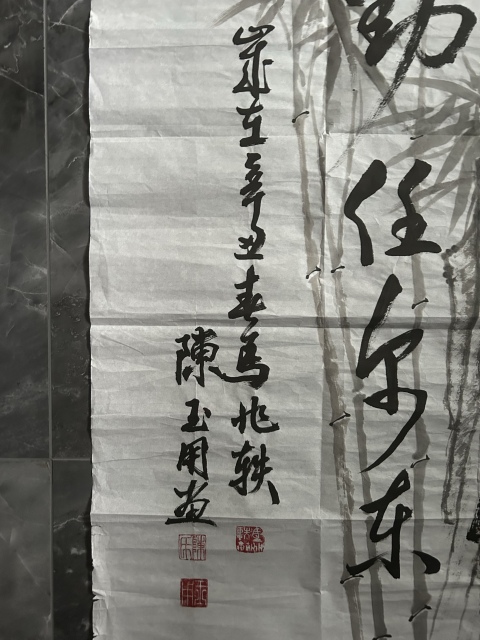 劲任尔东
岁在辛丑春马兆轶
陈玉用画